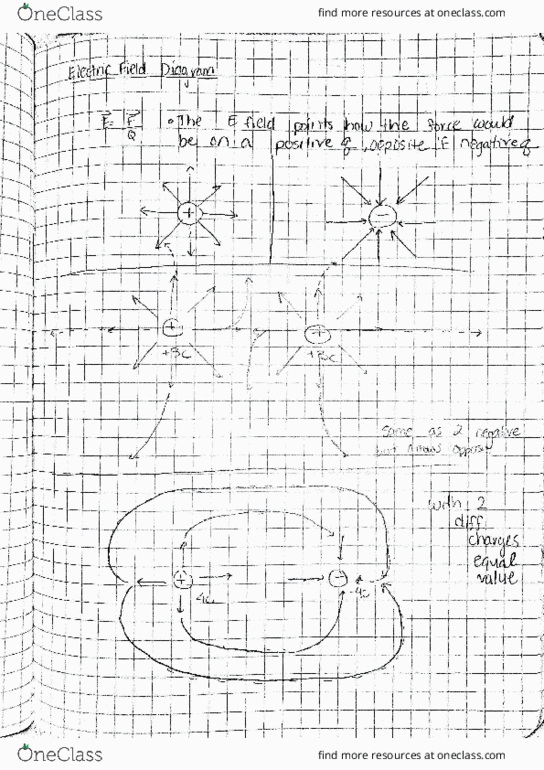 OneClass
find more resources at oneclass.com
Electric Field Diagram
E = F/Q
• The E field points how the force would
be on a positive q, opposite if negative q
+
−
+
+3c
+
+3c
Same as 2 negative
but arrows opposite
with 2
diff
charges
equal
value
+
4c
−
-4c
OneClass
find more resources at oneclass.com